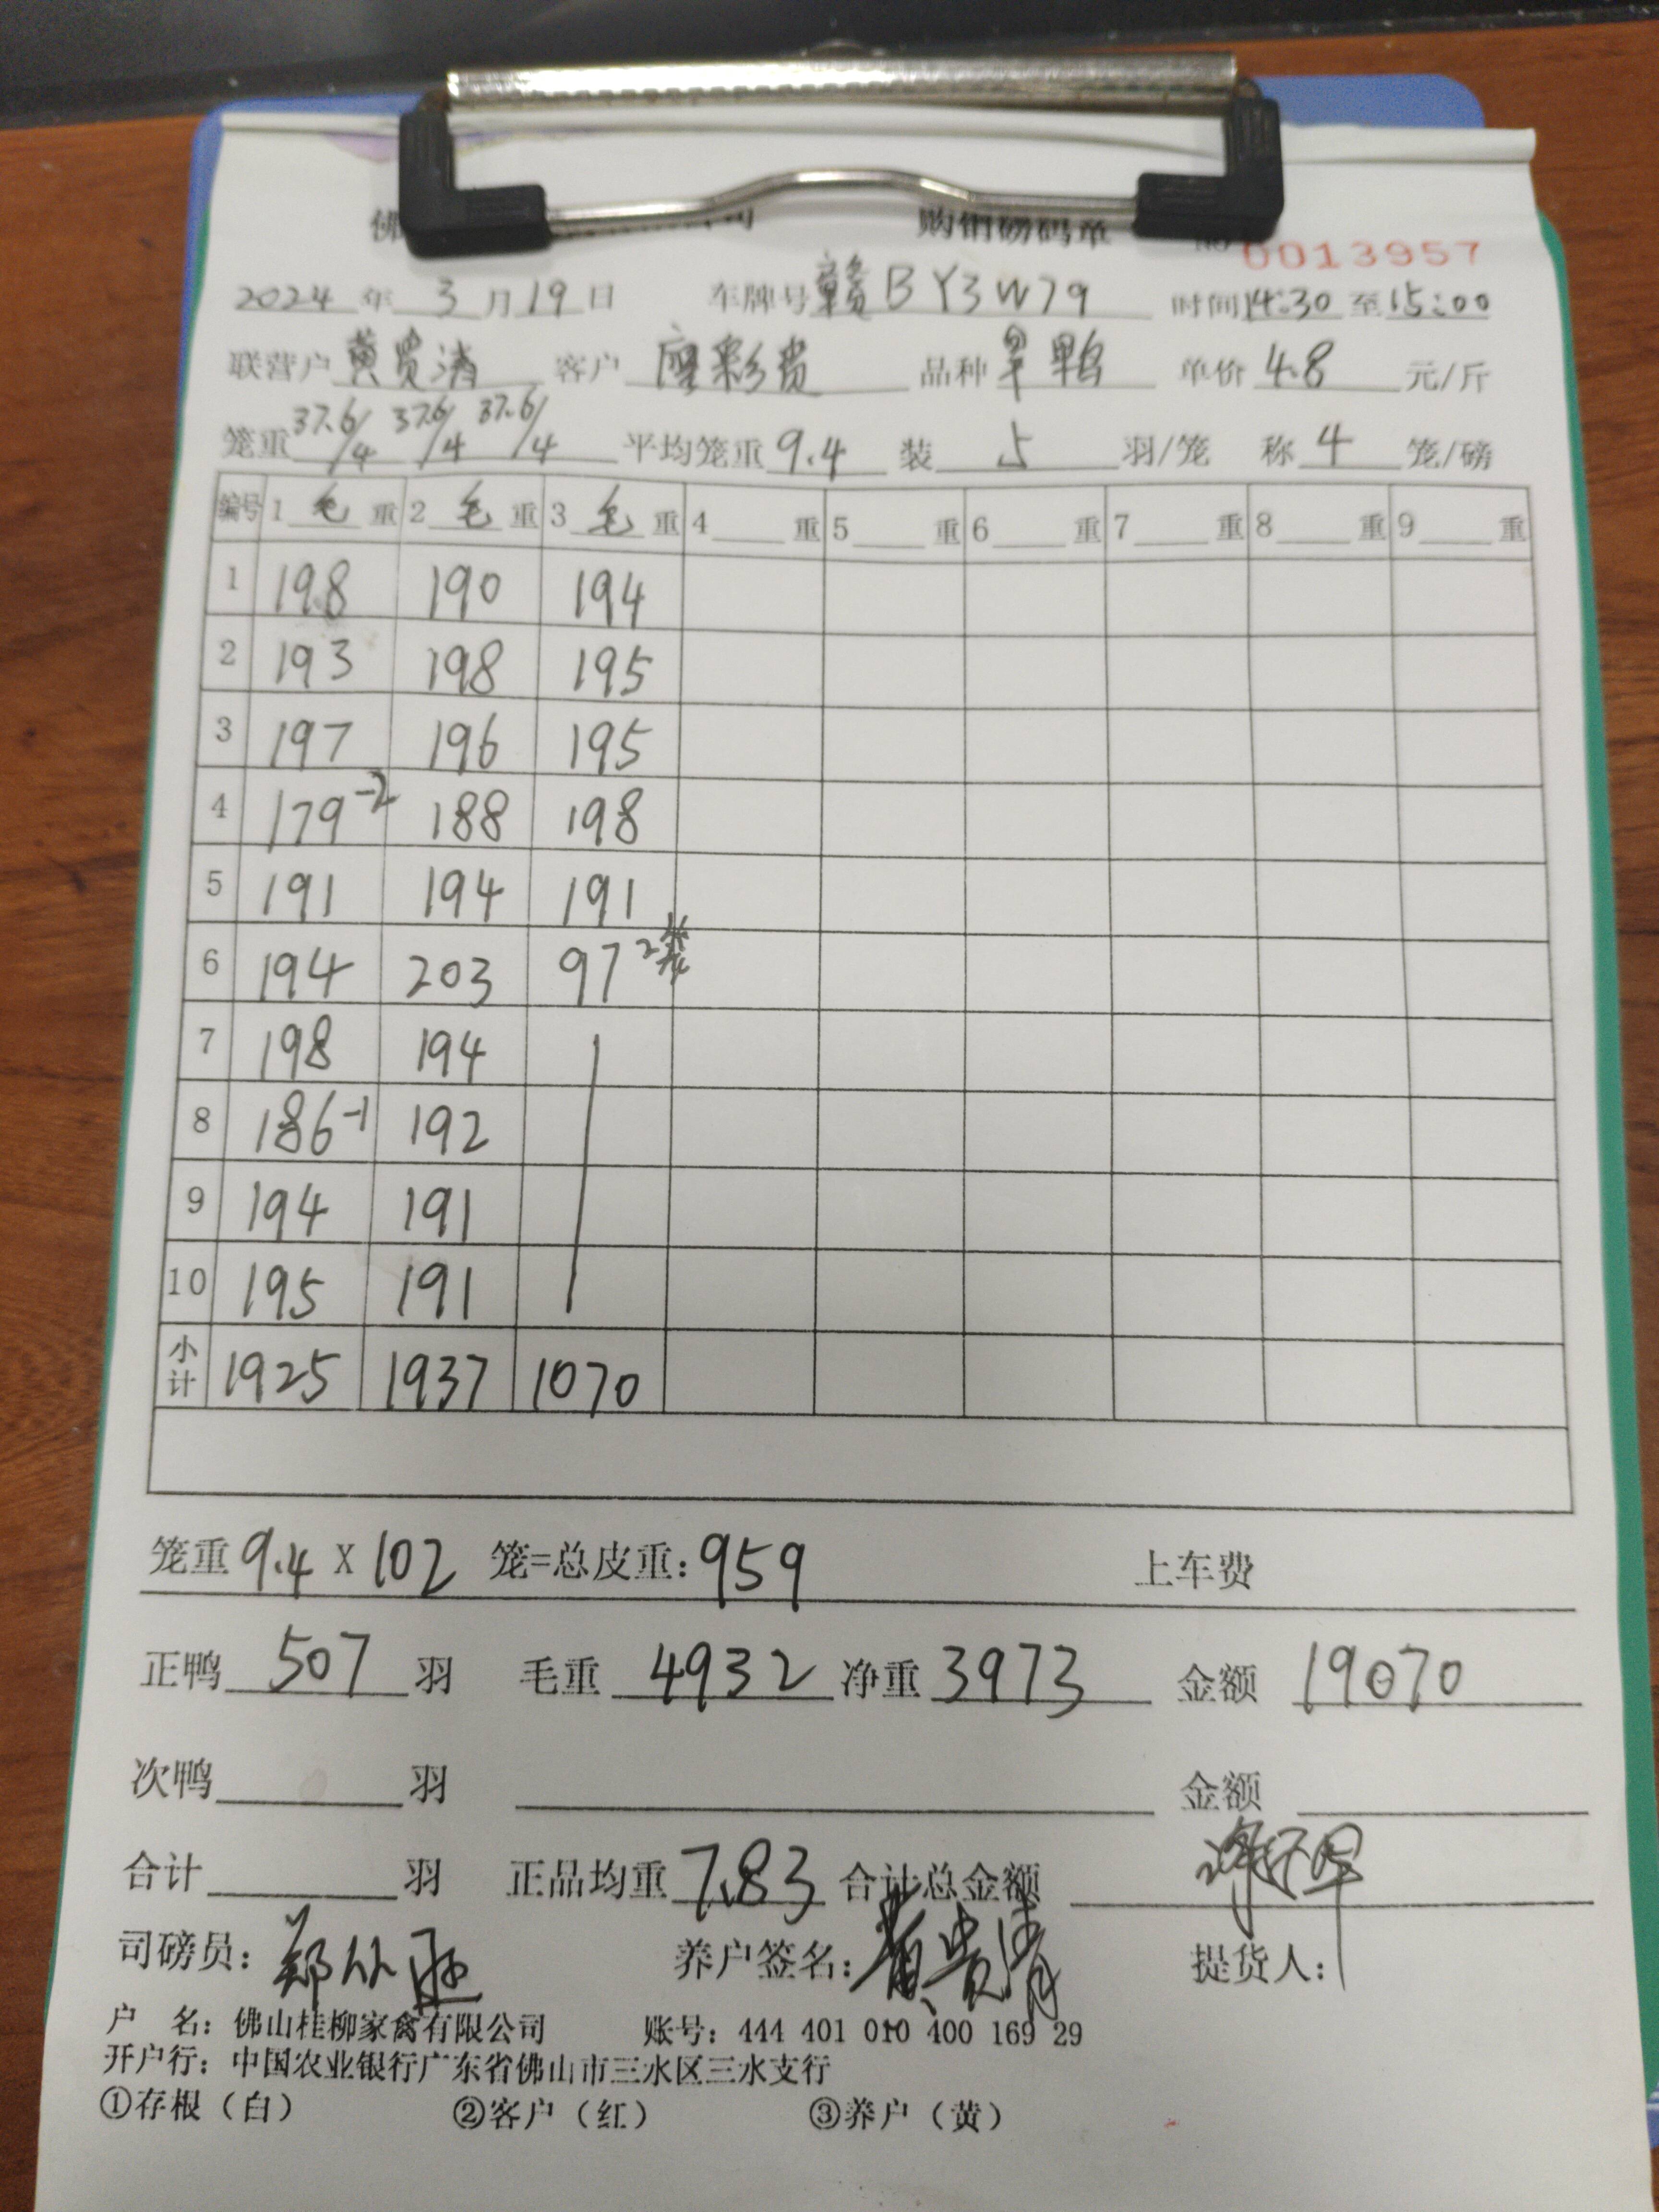 佛 司 购销磅码单 No 0013957
2024 年 3 月 19 日 车牌号 赣BY3W79 时间 14:30 至 15:00
联营户 黄贵清 客户 廖彩贵 品种 旱鸭 单价 4.8 元/斤
笼重 37.6/4 37.6/4 37.6/4 平均笼重 9.4 装 5 羽/笼 称 4 笼/磅
编号 1 毛 重 2 毛 重 3 毛 重 4 重 5 重 6 重 7 重 8 重 9 重
1 198 190 194
2 193 198 195
3 197 196 195
4 179-2 188 198
5 191 194 191
6 194 203 97 2
7 198 194
8 186-1 192
9 194 191
10 195 191
小计 1925 1937 1070
笼重 9.4 X 102 笼=总皮重: 959 上车费
正鸭 507 羽 毛重 4932 净重 3973 金额 19070
次鸭 羽 金额
合计 羽 正品均重 7.83 合计总金额
司磅员: 养户签名: 黄贵清 提货人:
户 名: 佛山桂柳家禽有限公司 账号: 444 401 010 400 169 29
开户行: 中国农业银行广东省佛山市三水区三水支行
①存根（白） ②客户（红） ③养户（黄）